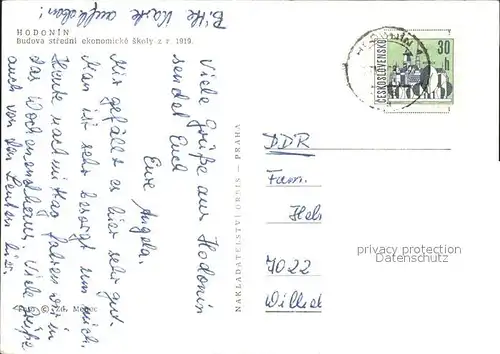 Bitte Karte aufheben!
HODONÍN
Budova střední ekonomické školy z r. 1919.
Viele Grüße aus Hodonin
sendet Euch
Eure Angela.
Mir gefällt es hier sehr gut.
Man ist sehr besorgt um mich.
Heute nachmittag fahren wir in
das Wochenendhaus. Viele Grüße
auch von den Leuten hier.
NAKLADATELSTVÍ ORBIS — PRAHA
HODONÍN
ČESKOSLOVENSKO
30
h
DDR
Fam.
7022
privacy protection
Datenschutz